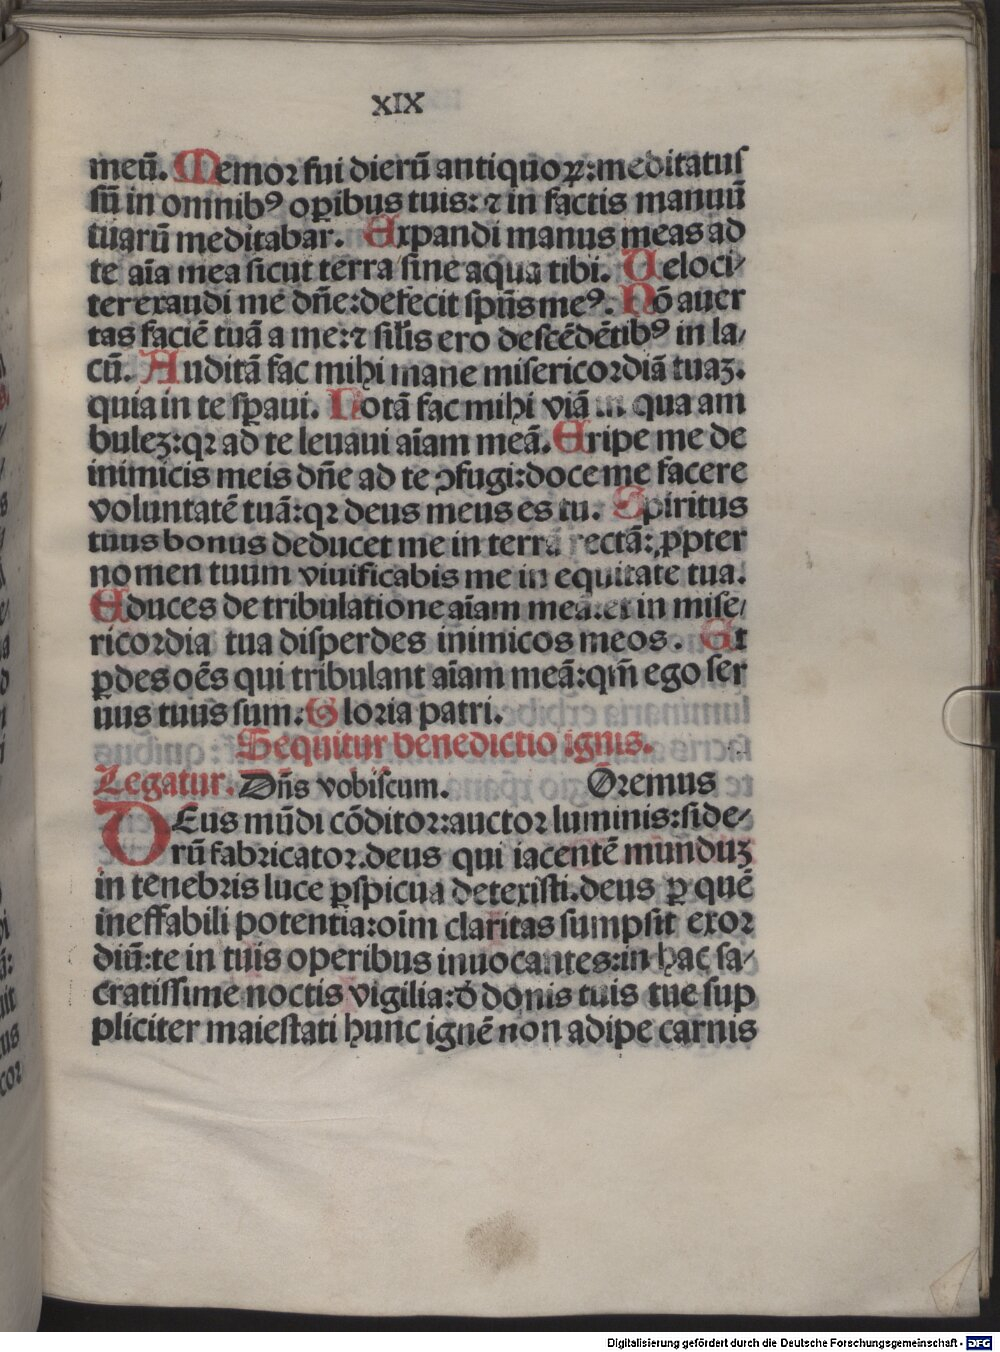 XIX
meū. Memor fui dierū antiquoꝝ: meditatus
sū in omnibꝰ oꝑibus tuis: ⁊ in factis manuū
tuarū meditabar. Expandi manus meas ad
te aīa mea sicut terra sine aqua tibi. Veloci⸗
ter exaudi me dn̄e: defecit spūs meꝰ. Nō auer
tas faciē tuā a me: ⁊ sil̄is ero descēdētibꝰ in la⸗
cū. Auditā fac mihi mane misericordiā tuaꝫ.
quia in te sꝑaui. Notā fac mihi viā in qua am
buleꝫ: qꝛ ad te leuaui aīam meā. Eripe me de
inimicis meis dn̄e ad te ꝯfugi: doce me facere
voluntatē tuā: qꝛ deus meus es tu. Spiritus
tuus bonus deducet me in terrā rectā: ꝓpter
nomen tuum viuificabis me in equitate tua.
Educes de tribulatione aīam meā: et in mise⸗
ricordia tua disperdes inimicos meos. Et
ꝑdes oēs qui tribulant aīam meā: qm̄ ego ser
uus tuus sum. Gloria patri.
Sequitur benedictio ignis.
Legatur. Dn̄s vobiscum. Oremus
DEus mūdi cōditor: auctor luminis: side⸗
rū fabricator. deus qui iacentē munduꝫ
in tenebris luce ꝑspicua detexisti. deus ꝑ quē
ineffabili potentia: oīm claritas sumpsit exor
diū: te in tuis operibus inuocantes: in hac sa⸗
cratissime noctis vigilia: đ donis tuis tue sup
pliciter maiestati hunc ignē non adipe carnis
Digitalisierung gefördert durch die Deutsche Forschungsgemeinschaft - DFG